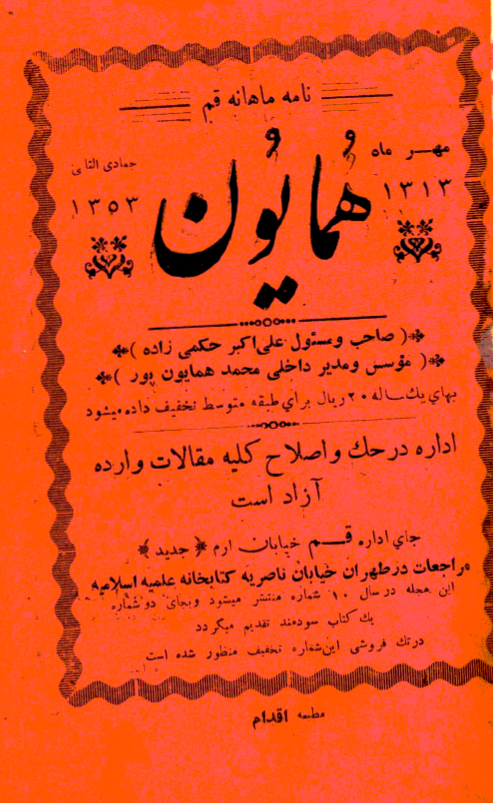 نامه ماهانه قم
مهر ماه ۱۳۱۳
جمادی الثانی ۱۳۵۳
همایون
(صاحب ومسئول علی اکبر حکمی زاده)
(مؤسس ومدیر داخلی محمد همایون پور)
بهای یك ساله ۲۰ ریال برای طبقه متوسط تخفیف داده میشود
اداره در حك و اصلاح کلیه مقالات وارده
آزاد است
جای اداره قم خیابان ارم (جدید)
مراجعات در طهران خیابان ناصریه کتابخانه علمیه اسلامیه
این مجله در سال ۱۰ شماره منتشر میشود وبجای دو شماره
یك کتاب سودمند تقدیم میگردد
در تك فروشی این شماره تخفیف منظور شده است
مطبعه اقدام